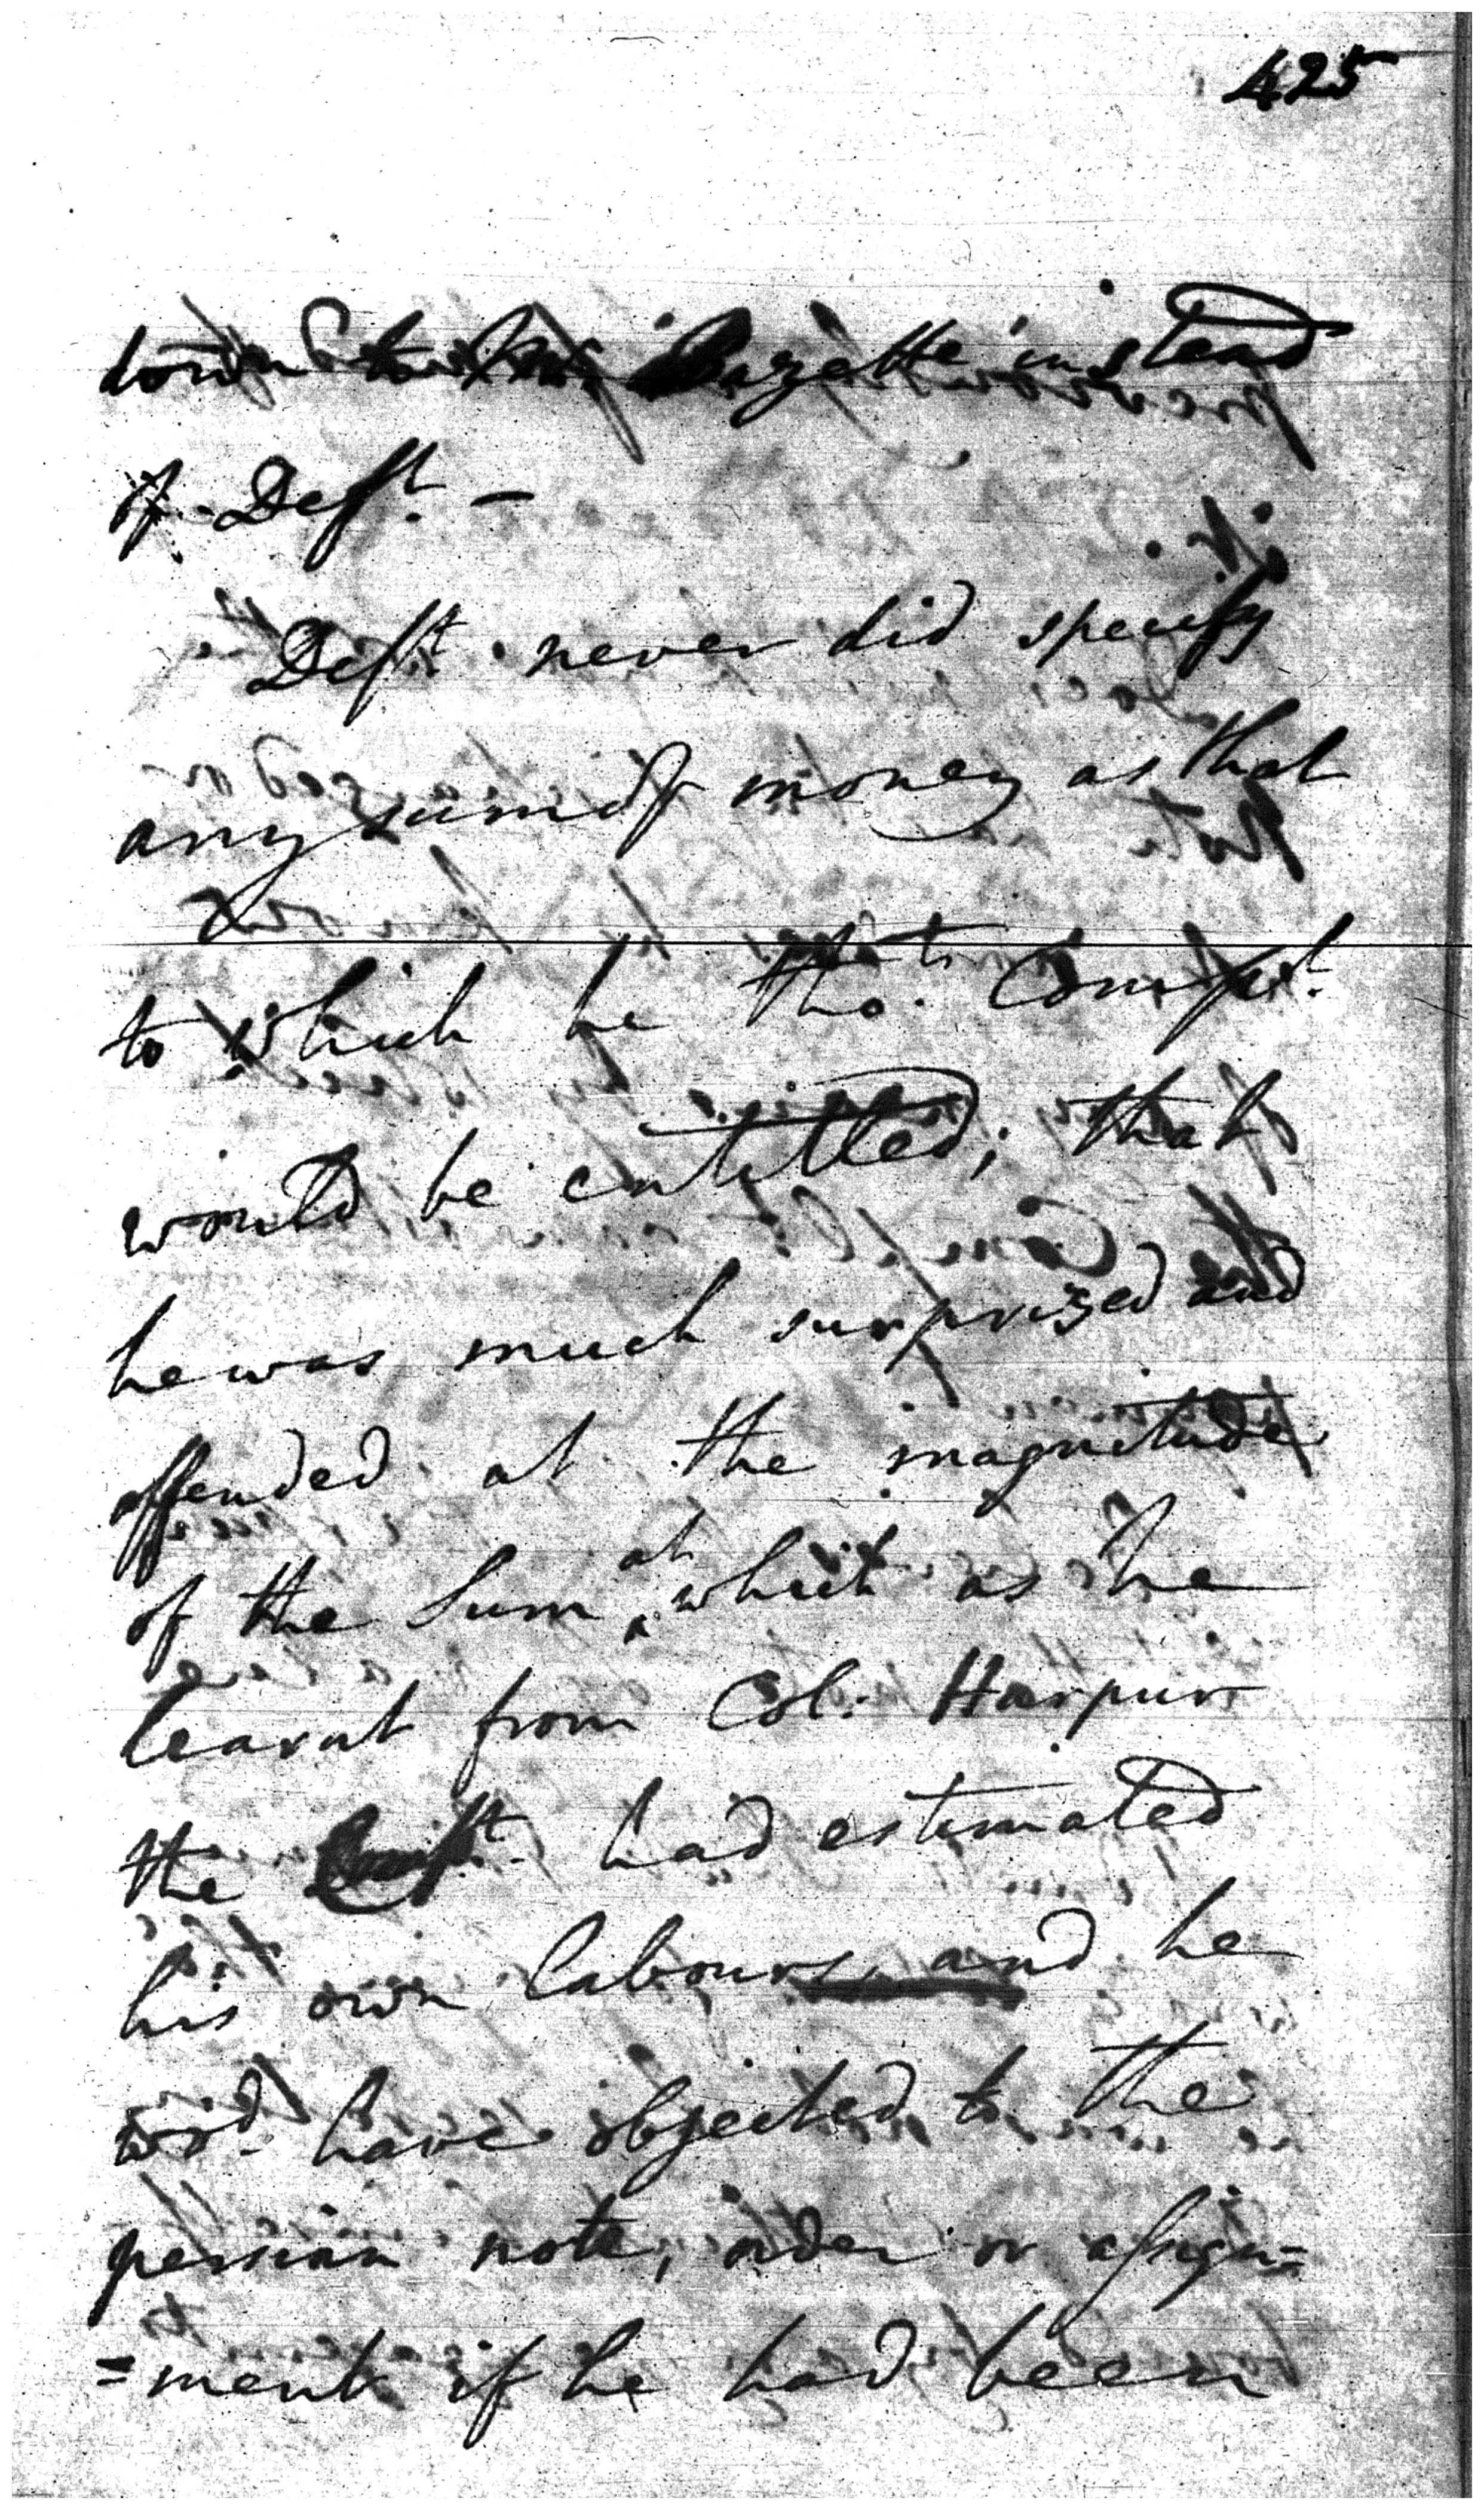 425
down to his Gazette instead
of Deft. -
Deft. never did specify
any sum of money as that
to which he tho.t Compt.
would be entitled; that
he was much surprized and
offended at the magnitude
of the Sum at which as he
learnt from Col: Harpur
the had estimated
his own labours and he
wod. have objected to the
persian note, order or assign=
=ment if he had been